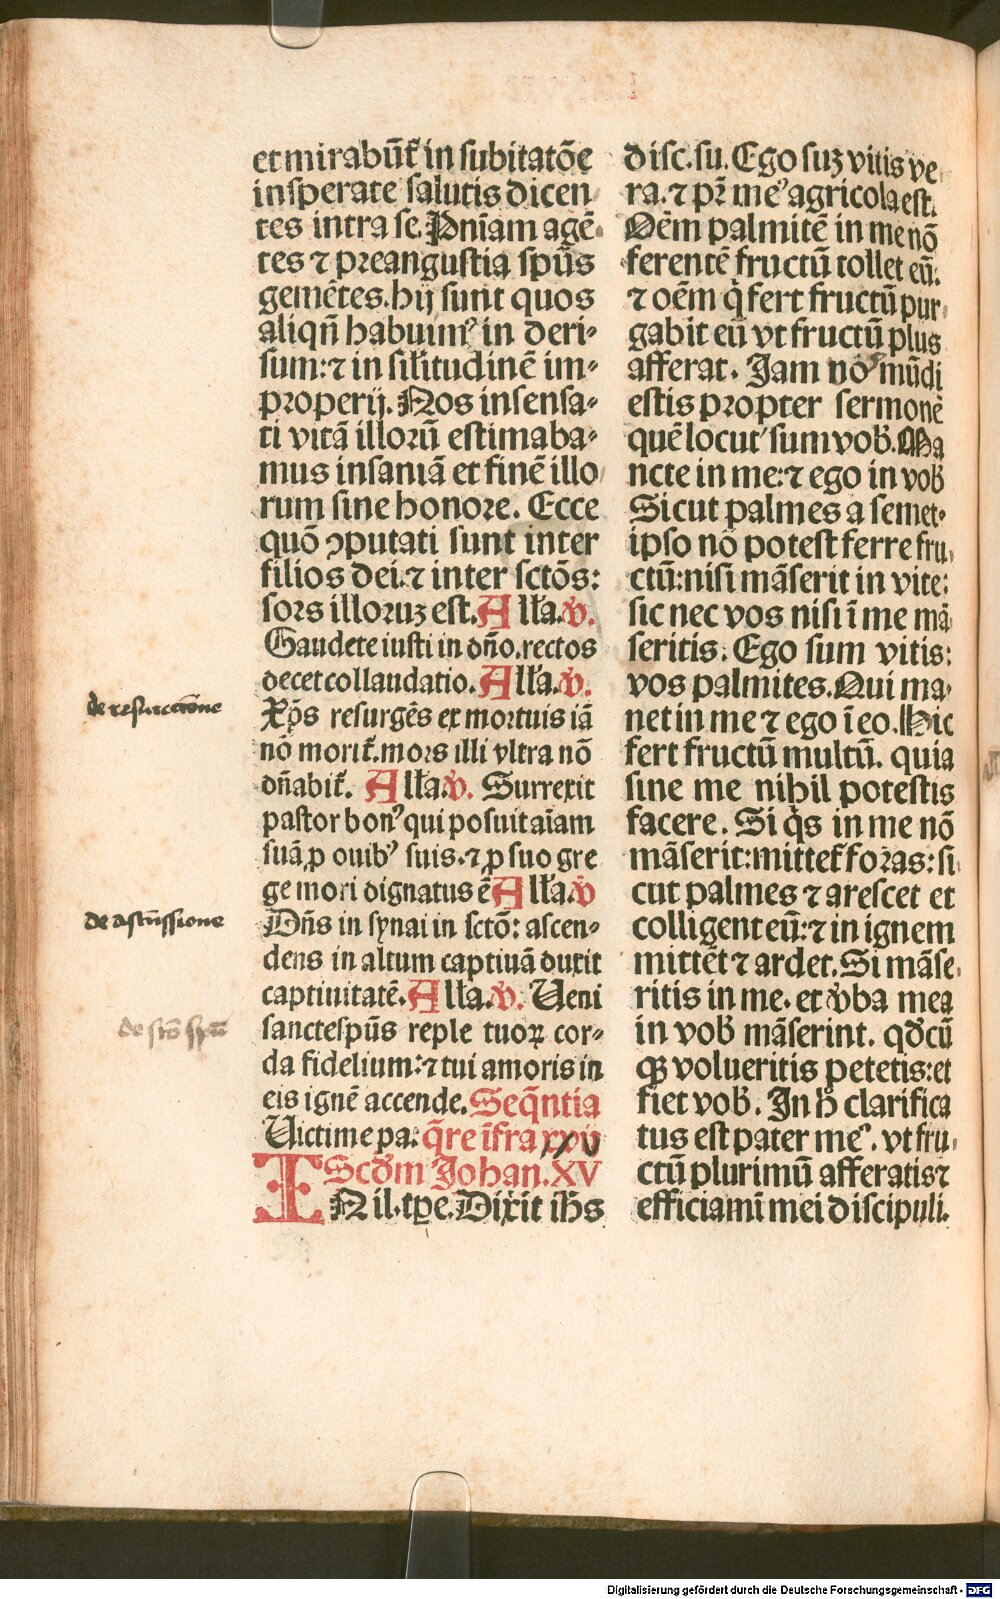 et mirabūt᷑ in subitatōe
insperate salutis dicen
tes intra se. Pnīam agē-
tes ⁊ preangustia spūs
gemētes. hij sunt quos
aliqñ habuimꝰ in deri-
sum: ⁊ in silitudinē im-
properij. Nos insensa-
ti vitā illorū estimaba-
mus insaniā et finē illo
rum sine honore. Ecce
quō ꝯputati sunt inter
filios dei: ⁊ inter sctōs:
sors illoruꝫ est. Alła. ℣.
Gaudete iusti in dño. rectos
decet collaudatio. Alła. ℣.
Xp̄s resurgēs ex mortuis iā
nō morit᷑. mors illi vltra nō
dñabit᷑. Alła. ℣. Surrexit
pastor bonꝰ qui posuit aīam
suā ꝓ ouibꝰ suis. ⁊ ꝓ suo gre
ge mori dignatus ē Alła ℣
Dñs in synai in sctō: ascen-
dens in altum captiuā duxit
captiuitatē. Alła. ℣. Ueni
sanctespūs reple tuoꝝ cor-
da fidelium: ⁊ tui amoris in
eis ignē accende. Seq̄ntia
Uictime pa: q̄re īfra xxv
Scd̄m Johan. XV
IN il. tꝑe. Dixit ih̄s
disc. su. Ego suꝫ vitis ve
ra. ⁊ pr̄ meꝰ agricola est.
Oēm palmitē in me nō
ferentē fructū tollet eū.
⁊ oēm q̇ fert fructū pur
gabit eū vt fructū plus
afferat. Jam vōˢ mūdi
estis propter sermonē
quē locutꝰ sum vob̄. Ma
nete in me: ⁊ ego in vob̄
Sicut palmes a semet-
ipso nō potest ferre fru
ctū: nisi māserit in vite:
sic nec vos nisi ī me mā
seritis. Ego sum vitis:
vos palmites. Qui ma-
net in me ⁊ ego ī eo. Hic
fert fructū multū. quia
sine me nihil potestis
facere. Si q̇s in me nō
māserit: mittet᷑ foras: si
cut palmes ⁊ arescet et
colligent eū: ⁊ in ignem
mittēt ⁊ ardet. Si māse
ritis in me. et v̄ba mea
in vob̄ māserint. qd̄cū
qꝫ volueritis petetis: et
fiet vob̄. In h̄ clarifica
tus est pater meꝰ. vt fru-
ctū plurimū afferatis ⁊
efficiamī mei discipuli.
de resurrectiōne
de asc̄nssione
de sctō spū
Digitalisierung gefördert durch die Deutsche Forschungsgemeinschaft - DFG